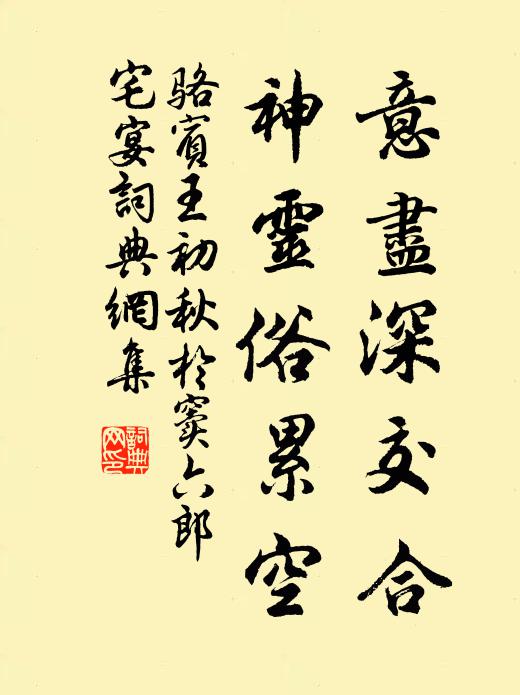 意盡深交合
神靈俗累空
駱賓王初秋於竇六郎
宅宴詞典網集
詞典
网印